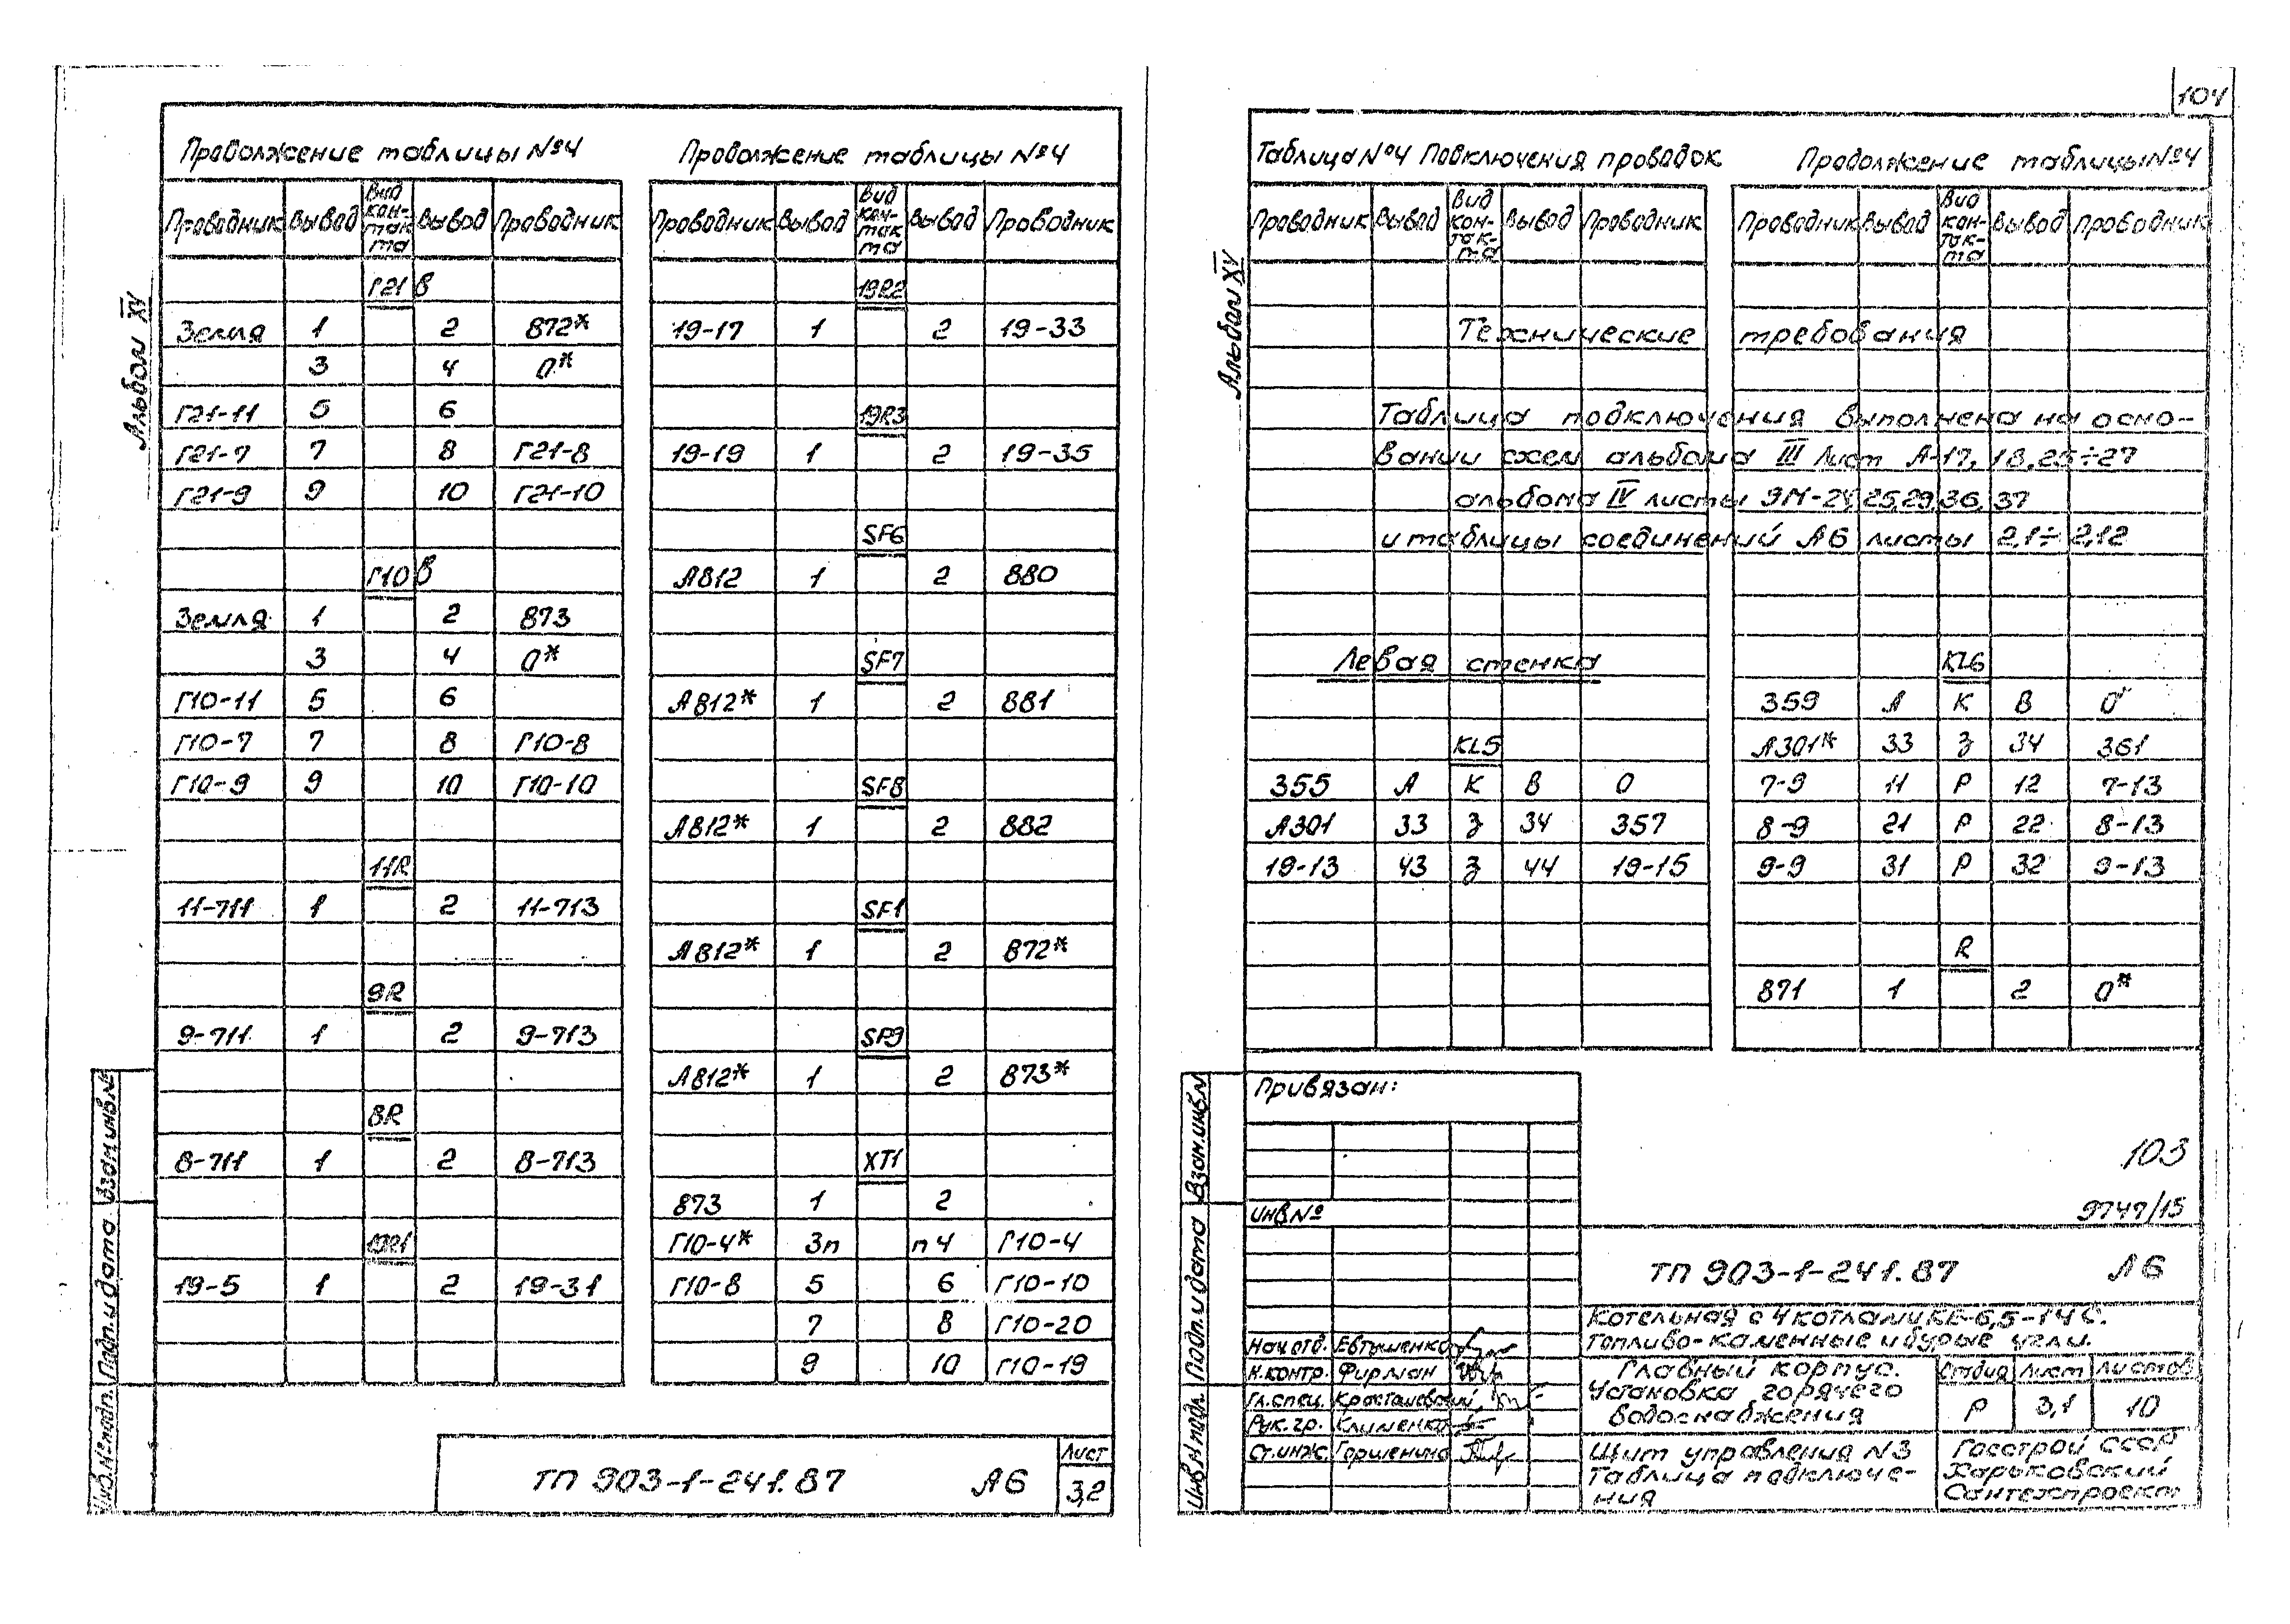 104
Альбом XV
Продолжение таблицы №4
Проводник Вывод Вид кон-так-та Вывод Проводник
Г21В
Земля 1 2 872*
3 4 0*
Г21-11 5 6
Г21-7 7 8 Г21-8
Г21-9 9 10 Г21-10
Г10В
Земля 1 2 873
3 4 0*
Г10-11 5 6
Г10-7 7 8 Г10-8
Г10-9 9 10 Г10-10
11R
11-711 1 2 11-713
9R
9-711 1 2 9-713
8R
8-711 1 2 8-713
19R1
19-5 1 2 19-31
Продолжение таблицы №4
Проводник Вывод Вид кон-так-та Вывод Проводник
19R2
19-17 1 2 19-33
19R3
19-19 1 2 19-35
SF6
А812 1 2 880
SF7
А812* 1 2 881
SF8
А812* 1 2 882
SF1
А812* 1 2 872*
SF9
А812* 1 2 873*
XT1
873 1 2
Г10-4* 3п п4 Г10-4
Г10-8 5 6 Г10-10
7 8 Г10-20
9 10 Г10-19
Инв.№подл. Подп. и дата Взам инв№
ТП 903-1-241.87 А6
Лист
3,2
Альбом XV
Таблица №4 Подключения проводок
Проводник Вывод Вид кон-так-та Вывод Проводник
Продолжение таблицы №4
Проводник Вывод Вид кон-так-та Вывод Проводник
Технические требования
Таблица подключения выполнена на осно-
вании схем альбома III Лист А-17, 18,25÷27
альбома IV листы ЭМ-24,25,29,36,37
и таблицы соединений А6 листы 2,1÷2,12
Левая стенка
KL5
355 А К В 0
А301 33 З 34 357
19-13 43 З 44 19-15
KL6
359 А К В 0*
А301* 33 З 34 361
7-9 11 Р 12 7-13
8-9 21 Р 22 8-13
9-9 31 Р 32 9-13
R
871 1 2 0*
Привязан:
Инв№
103
9747/15
ТП 903-1-241.87 А6
Котельная с 4 котлами КЕ-6,5-14С.
Топливо-каменные и бурые угли.
Нач.отд. Евтушенко
Н.контр. Фирман
Гл.спец.
Рук.гр. Клименко
Ст.инж. Горшенина
Главный корпус.
Установка горячего
водоснабжения
Стадия Лист Листов
Р 3,1 10
Щит управления N3
Таблица подключе-
ния
Госстрой СССР
Харьковский
Сантехпроект
Инв.№ подл. Подп. и дата Взам.инв.N